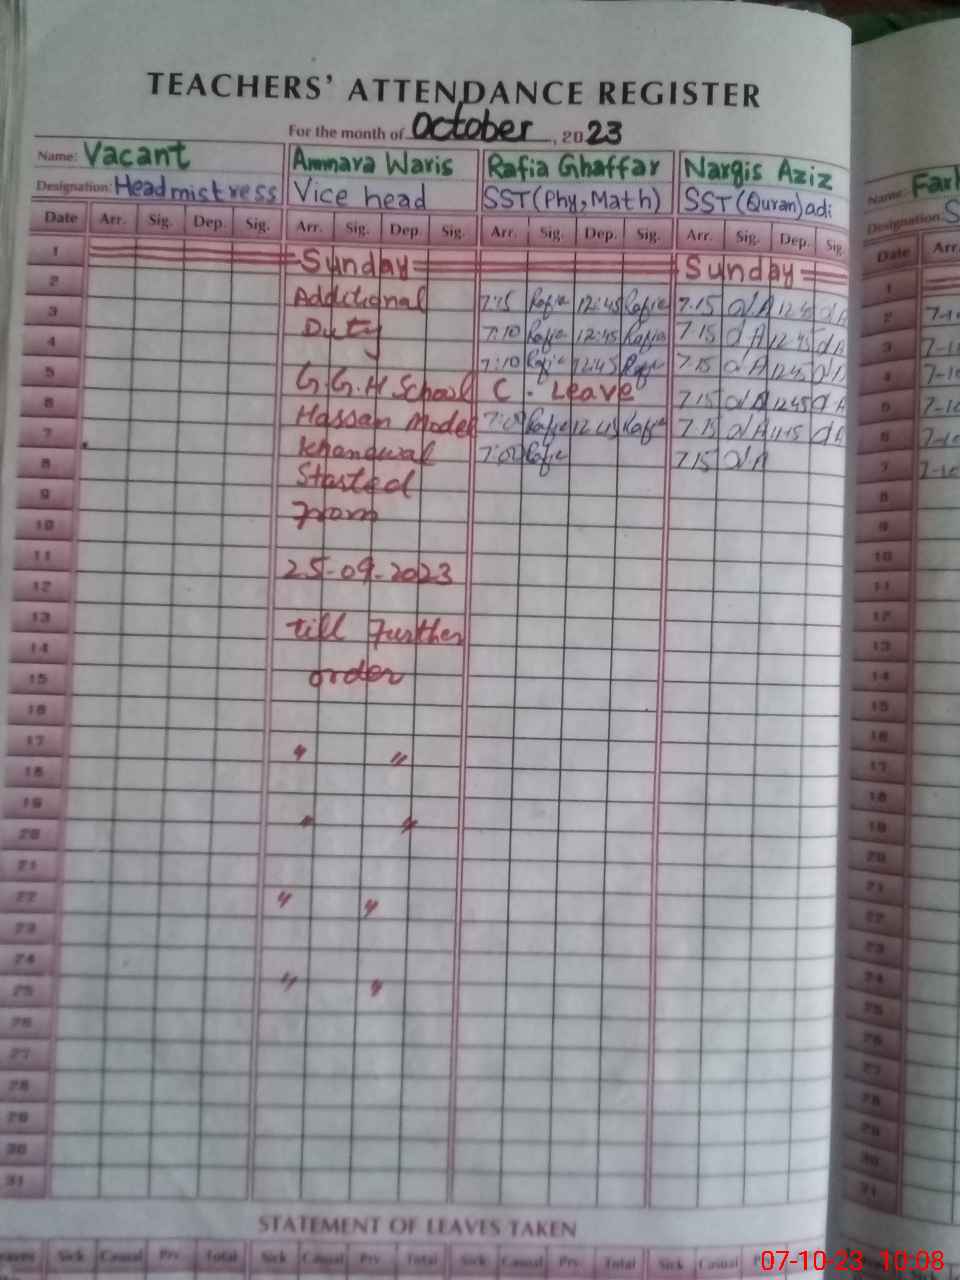 TEACHERS' ATTENDANCE REGISTER
For the month of October, 2023
Name: Vacant Ammara Waris Rafia Ghaffar Nargis Aziz
Designation: Headmistress Vice head SST(Phy,Math) SST(Quran)adi
Date Arr. Sig. Dep. Sig. Arr. Sig. Dep. Sig. Arr. Sig. Dep. Sig. Arr. Sig. Dep. Sig.
1 Sunday Sunday
2 Additional 7:15 Rafia 12:45 Rafia 7.15 12 45
3 Duty 7:10 Rafia 12:45 Rafia 7.15 12 45
4 7:10 Rafia 12:45 Rafia 7.15 12 45
5 G.G.H School C. Leave 7.15 12 45
6 Hassan Model Rafia 12:45 Rafia 7.15
7 Khanewal Rafia 7.15
8 Started
9 From
10
11 25-09-2023
12
13 till Further
14
15 order
16
17 " "
18
19
20 " "
21
22 " "
23
24
25 " "
26
27
28
29
30
31
STATEMENT OF LEAVES TAKEN
Sick Casual Prv. Total Sick Casual Prv. Total Sick Casual Prv. Total Sick Casual
Name:
Designation:
Date Arr.
1
2
3
4
5
6
7
8
9
10
11
12
13
14
15
16
17
18
19
20
21
22
23
24
25
26
27
28
29
30
31
07-10-23 10:08